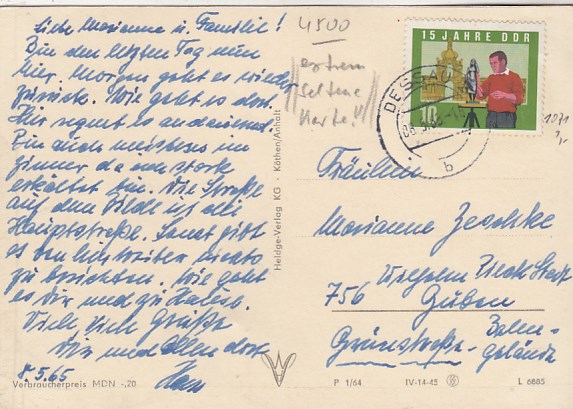 Liebe Marianne u. Familie!
Bin den letzten Tag nun
hier. Morgen geht es wieder
zurück. Wie geht es dort.
Hier regnet es andauernd.
Bin auch meistens im
Zimmer da stark
erkältet bin. Die Straße
auf dem Bilde ist die
Hauptstraße. Sonst gibt
es den weiter nichts
zu berichten. Wie geht
es Dir und
Viele liebe Grüße
Dir und allen dort
8.5.65
Verbraucherpreis MDN -,20
Heldge-Verlag KG · Köthen/Anhalt
4500
extrem
seltene
Karte!
15 JAHRE DDR
10
DESSAU
b
1071
Fräulein
Marianne Zeschke
Wilhelm Pieck Stadt
756 Guben
Grünstraße-
gelände
P 1/64
IV-14-45
L 6685